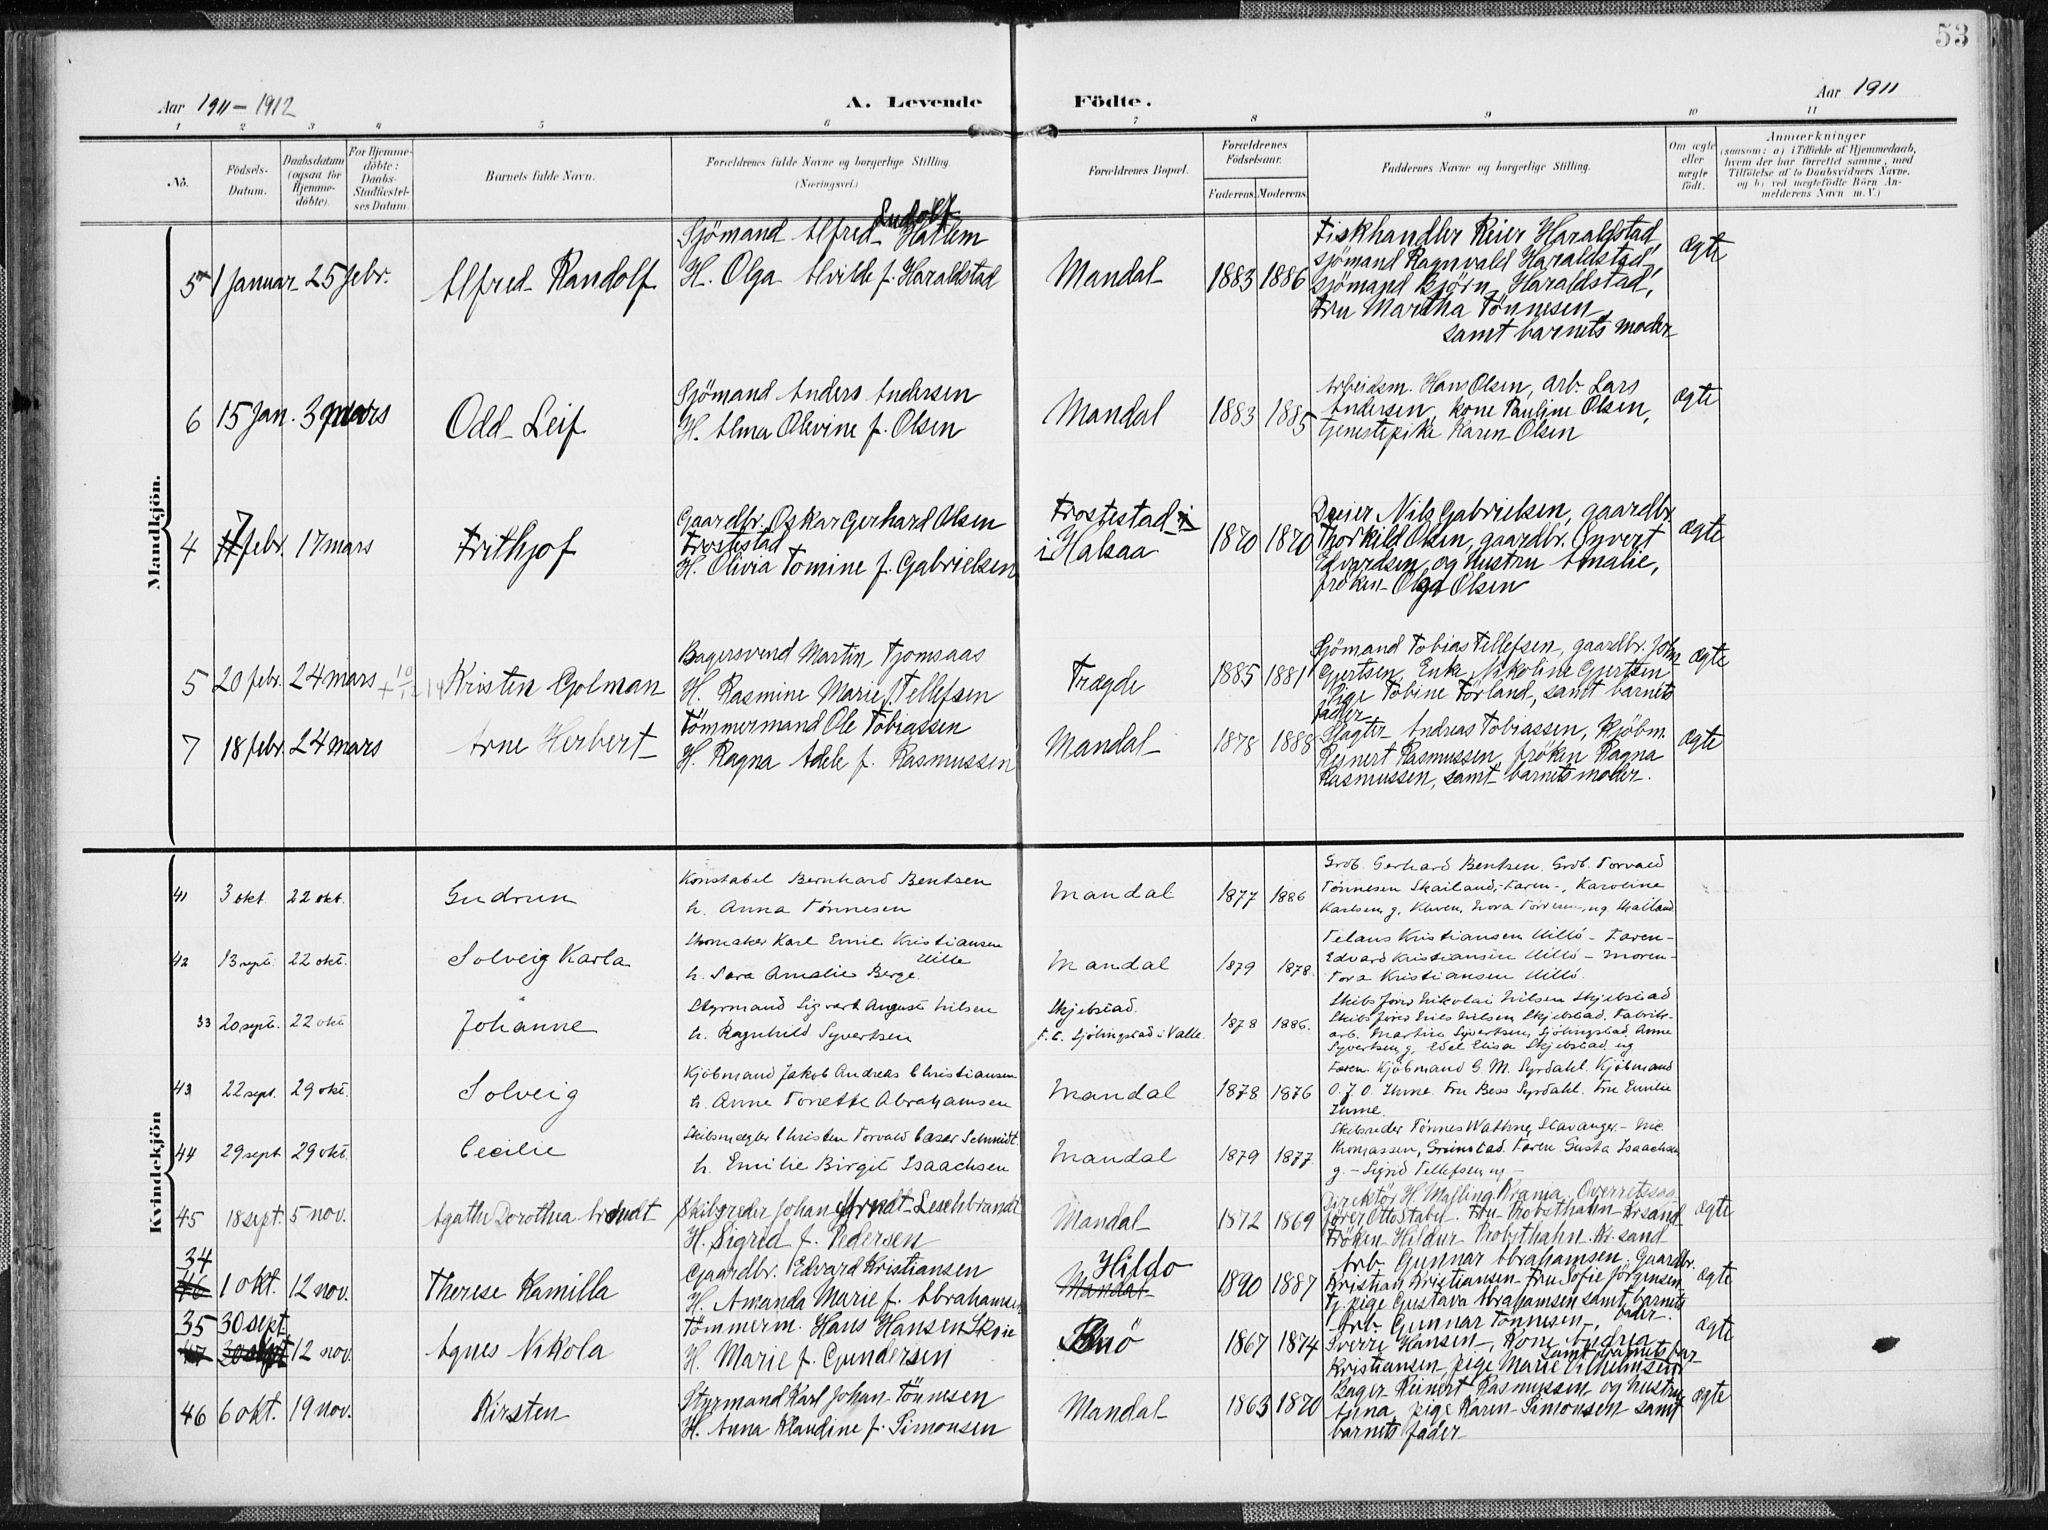 53
Aar 1911 - 1912
A. Levende
Födte.
Aar 1911
1 2 3 4 5 6 7 8 9 10 11
No.
Födsels-Datum.
Daabsdatum (ogsaa for Hjemmedöbte).
For Hjemmedöbte: Daabs-Stadfæstelses Datum.
Barnets fulde Navn.
Forældrenes fulde Navne og borgerlige Stilling. (Næringsvei.)
Forældrenes Bopæl.
Forældrenes Födselsaar.
Faderens. Moderens.
Faddernes Navne og borgerlige Stilling.
Om ægte eller uægte födt.
Anmærkninger
(saasom: a) i Tilfælde af Hjemmedaab, hvem der har forrettet samme, med Tilföielse af to Daabsvidners Navne, og b) ved uægtefödte Börn Anmelderens Navn m. V.)
Mandkjön.
5 1 Januar 25 febr. Alfred Randolf
Sjömand Alfred Ludolf Hallem
H. Olga Alvilde f. Haraldstad
Mandal 1883 1886
Fiskhandler Reier Haraldstad,
sjömand Ragnvald Haraldstad,
sjömand Björn Haraldstad,
Fru Martha Tönnesen,
samt barnets moder
ægte
6 15 Jan. 3 mars Odd Leif
Sjömand Anders Andersen
H. Alma Olevine f. Olsen
Mandal 1883 1885
Arbeidsm. Hans Olsen, arb. Lars
Andersen, kone Pauline Olsen,
tjenestepike Karen Olsen
ægte
4 7 febr. 17 mars Frithjof
Gaardbr. Oskar Gerhard Olsen
Frostestad
H. Olivia Tomine f. Gabrielsen
Frostestad
i Halsaa 1870 1870
Nils Gabrielsen, gaardbr.
Thorkild Olsen, gaardbr. Syvert
Edvardsen og hustru Amalie,
fröken Olga Olsen
ægte
5 20 febr. 24 mars Kristen Golman
Bagersvend Martin Tjomsaas
H. Rasmine Marie f. Tellefsen
Tregde 1885 1881
Sjömand Tobias Tellefsen, gaardbr. John
Gjertsen, Enke Nikoline Gjertsen
Pige Tobine Törland, samt barnets
fader
ægte
7 18 febr. 24 mars Arne Herbert
Tömmermand Ole Tobiassen
H. Ragna Adele f. Rasmussen
Mandal 1878 1888
Slagter Andreas Tobiassen, Kjöbm.
Reinert Rasmussen, fröken Ragna
Rasmussen, samt barnets moder.
ægte
Kvindekjön
41 3 okt. 22 okt. Gudrun
Konstabel Bernhard Bentsen
h. Anna Tönnesen
Mandal 1877 1886
Grob. Gerhard Bentsen. Grob. Torvald
Tönnesen Skailand, - Faren -, Karoline
Karlsen g. Kleven, Nora Tönnesen, ug Skailand
42 13 sept. 22 okt. Solveig Karla
Skomaker Karl Emil Kristiansen
Uillö
h. Sara Amalie Berge.
Mandal 1879 1878.
Kristiansen Uillö - Faren -
Edvard Kristiansen Uillö - moren -
Tora Kristiansen Uillö.
33 20 sept. 22 okt Johanne
Styrmand Sigvart August Nilsen
h. Ragnhild Syvertsen
Skjebstad.
F. t. Sjölingstad i Valle. 1878 1886.
Skibsförer Nikolai Nilsen Skjebstad
Skibsförer Nils Nilsen Skjebstad. Fabrik-
arb. Martin Syvertsen, Sjölingstad. Anne
Syvertsen g, Edel Elisa Skjebstad ug
43 22 sept. 29 okt. Solveig
Kjöbmand Jakob Andreas Christiansen
h. Anne Tonette Abrahamsen
Mandal 1878 1876
Faren. Kjöbmand G. M. Syrdahl. Kjöbmand
O. J. O. Ihme. Fru Bess Syrdahl. Fru Emilie
Ihme.
44 29 sept 29 okt. Cecilie
Skibsmægler Christen Torvald Cæsar Schmidt.
h. Emilie Birgit Isaachsen
Mandal 1879 1877.
Skibsreder Tönnes Wathne Stavanger -
Thomassen, Grimstad. Faren Gusta Isaachsen
g. - Sigrid Tellefsen ug -
45 18 sept. 5 nov. Agathe Dorothea Arendt
Skibsreder Johan Arndt Leschbrandt
H. Sigrid f. Pedersen
Mandal 1872 1869
Direktör H. Krama. Overretssag
förer Otto Stabel. Fru Krsand
Fröken Hildur Kr.sand
ægte
34
46 1 okt. 12 nov. Therese Kamilla
Gaardbr. Edvard Kristiansen
H. Amanda Marie f. Abrahamsen
Hildo
Mandal 1890 1887
Arb. Gunnar Abrahamsen. Gaardbr.
Kristian Kristiansen Fru Sofie Jörgensen
Tj. pige Gustava Abrahamsen samt barnets
fader.
ægte
35 30 sept.
47 30 sept 12 nov. Agnes Nikola
Tömmerm. Hans Hansen Skoie
H. Marie f. Gundersen
1867 1874
Arb. Gunnar Tönnesen,
Sverre Hansen, Kone Andrea
Kristiansen, pige Marie Vilhelmsen
ægte
46 6 okt. 19 nov. Kirsten
Styrmand Karl Johan Tönnesen
H. Anna Klaudine f. Simonsen
Mandal 1863 1870
Bager Reinert Rasmussen og hustru
Anna, pige Karen Simonsen samt
barnets fader
ægte